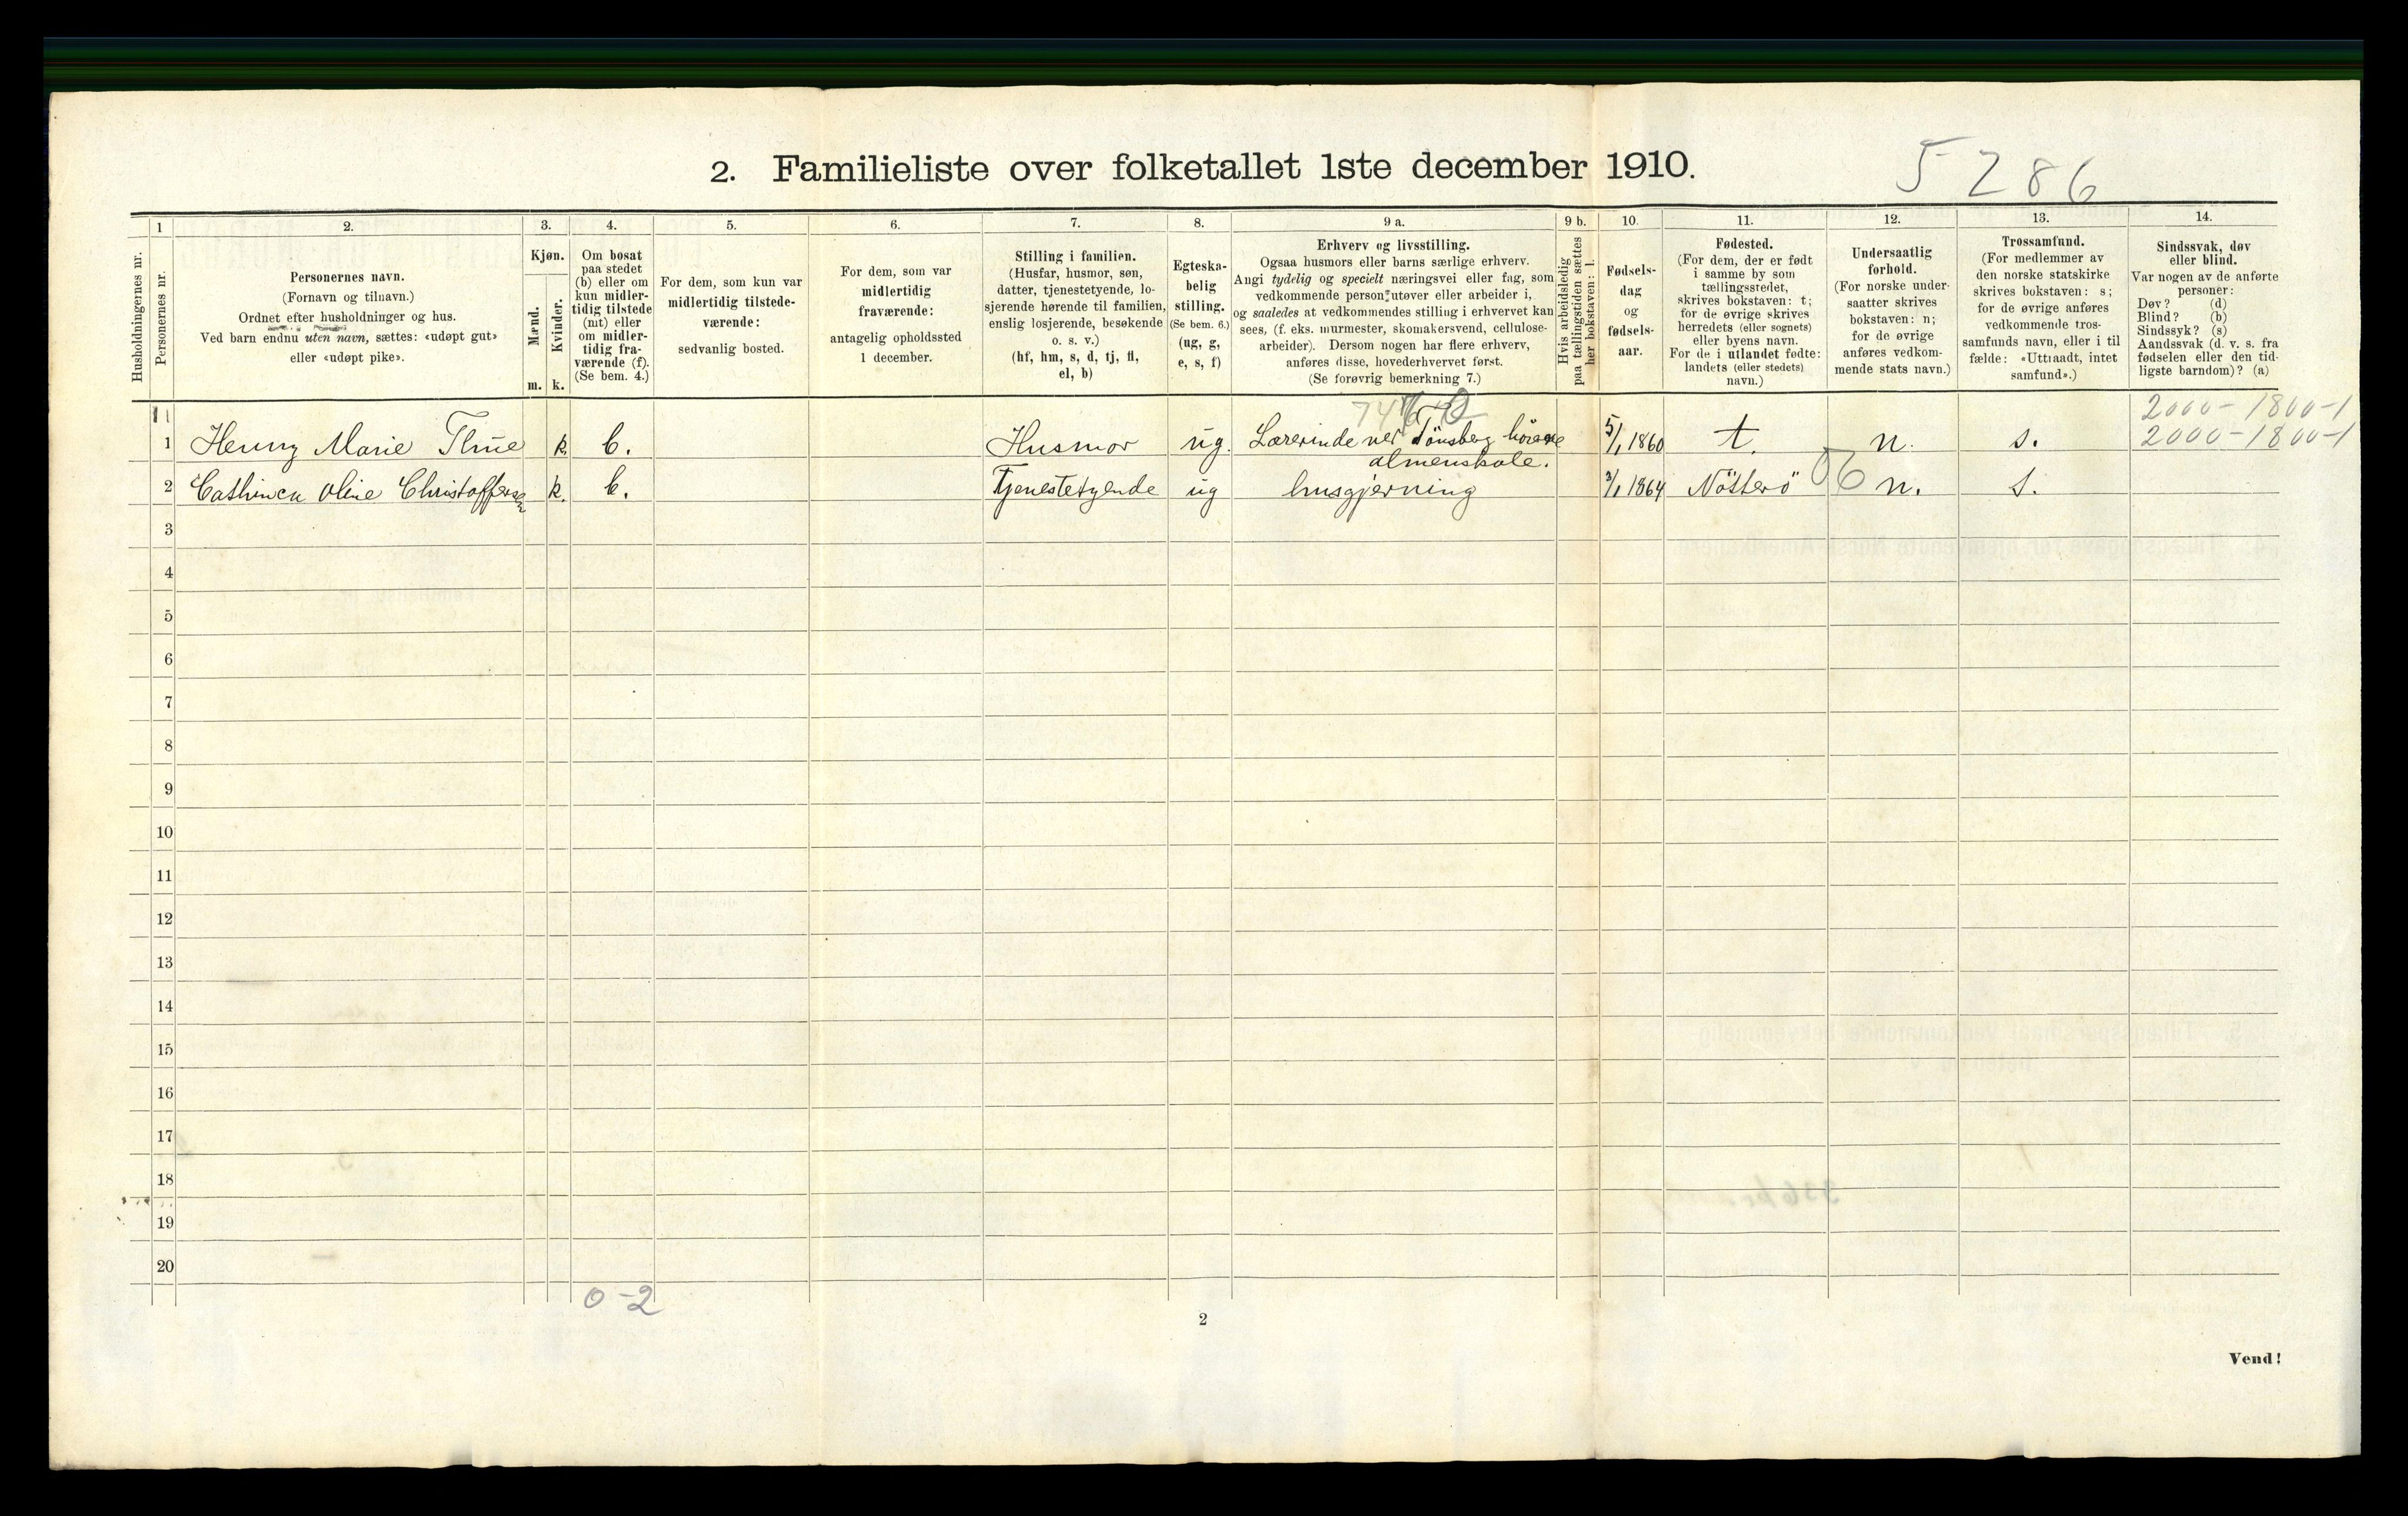 2. Familieliste over folketallet 1ste december 1910.
5286
Husholdningernes nr.
1
Personernes nr.
2.
Personernes navn.
(Fornavn og tilnavn.)
Ordnet efter husholdninger og hus.
Ved barn endnu uten navn, sættes: «udøpt gut»
eller «udøpt pike».
3.
Kjøn.
Mænd.
Kvinder.
m. k.
4.
Om bosat
paa stedet
(b) eller om
kun midler-
tidig tilstede
(mt) eller
om midler-
tidig fra-
værende (f).
(Se bem. 4.)
5.
For dem, som kun var
midlertidig tilstede-
værende:
sedvanlig bosted.
6.
For dem, som var
midlertidig
fraværende:
antagelig opholdssted
1 december.
7.
Stilling i familien.
(Husfar, husmor, søn,
datter, tjenestetyende, lo-
sjerende hørende til familien,
enslig losjerende, besøkende
o. s. v.)
(hf, hm, s, d, tj, fl,
el, b)
8.
Egteska-
belig
stilling.
(Se bem. 6.)
(ug, g,
e, s, f)
9 a.
Erhverv og livsstilling.
Ogsaa husmors eller barns særlige erhverv.
Angi tydelig og specielt næringsvei eller fag, som
vedkommende person utøver eller arbeider i,
og saaledes at vedkommendes stilling i erhvervet kan
sees, (f. eks. murmester, skomakersvend, cellulose-
arbeider). Dersom nogen har flere erhverv,
anføres disse, hovederhvervet først.
(Se forøvrig bemerkning 7.)
9 b.
Hvis arbeidsledig
paa tællingstiden sættes
her bokstaven: l.
10.
Fødsels-
dag
og
fødsels-
aar.
11.
Fødested.
(For dem, der er født
i samme by som
tællingsstedet,
skrives bokstaven: t;
for de øvrige skrives
herredets (eller sognets)
eller byens navn.
For de i utlandet fødte:
landets (eller stedets)
navn.)
12.
Undersaatlig
forhold.
(For norske under-
saatter skrives
bokstaven: n;
for de øvrige
anføres vedkom-
mende stats navn.)
13.
Trossamfund.
(For medlemmer av
den norske statskirke
skrives bokstaven: s;
for de øvrige anføres
vedkommende tros-
samfunds navn, eller i til
fælde: «Uttraadt, intet
samfund».)
14.
Sindssvak, døv
eller blind.
Var nogen av de anførte
personer:
Døv? (d)
Blind? (b)
Sindssyk? (s)
Aandssvak (d. v. s. fra
fødselen eller den tid-
ligste barndom)? (a)
2000-1800-1
1 Henny Marie k. b. Husmor ug. Lærerinde ved Tönsberg höiere 5/1 1860 t. n. s. 2000-1800-1
almenskole.
2 Cathinca Oline Christoffersen k. b. Tjenestetyende ug husgjerning 3/1 1864 Nötterö n. s.
3
4
5
6
7
8
9
10
11
12
13
14
15
16
17
18
19
20
0-2
2
Vend!